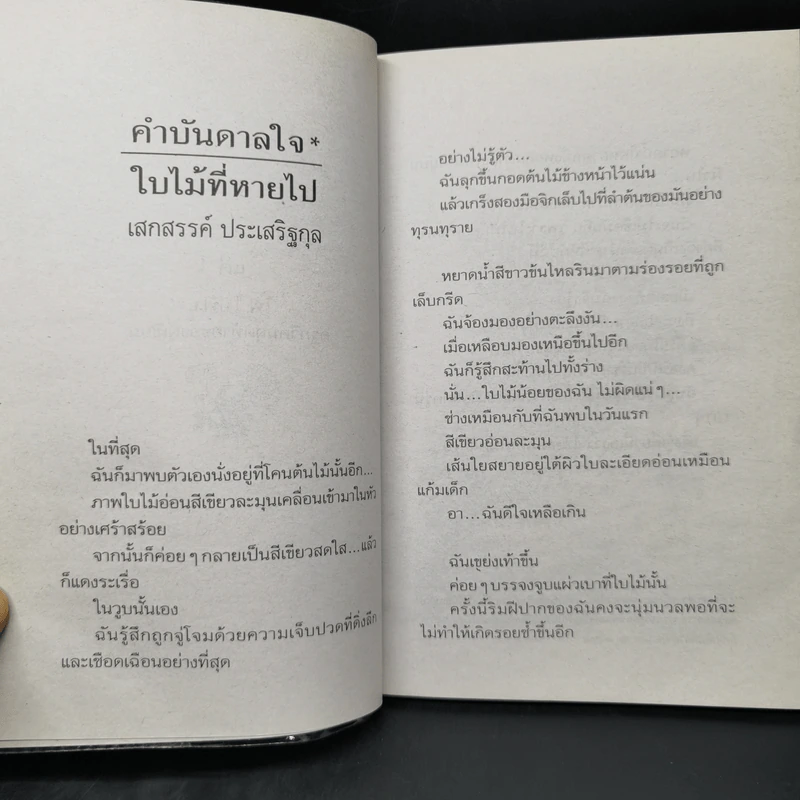 คำบันดาลใจ*
ใบไม้ที่หายไป
เสกสรรค์ ประเสริฐกุล
ในที่สุด
ฉันก็มาพบตัวเองนั่งอยู่ที่โคนต้นไม้นั้นอีก...
ภาพใบไม้อ่อนสีเขียวละมุนเคลื่อนเข้ามาในหัว
อย่างเศร้าสร้อย
จากนั้นก็ค่อย ๆ กลายเป็นสีเขียวสดใส...แล้ว
ก็แดงระเรื่อ
ในวูบนั้นเอง
ฉันรู้สึกถูกจู่โจมด้วยความเจ็บปวดที่ดิ่งลึก
และเชือดเฉือนอย่างที่สุด
อย่างไม่รู้ตัว...
ฉันลุกขึ้นกอดต้นไม้ข้างหน้าไว้แน่น
แล้วเกร็งสองมือจิกเล็บไปที่ลำต้นของมันอย่าง
ทุรนทุราย
หยาดน้ำสีขาวข้นไหลรินมาตามร่องรอยที่ถูก
เล็บกรีด
ฉันจ้องมองอย่างตะลึงงัน...
เมื่อเหลือบมองเหนือขึ้นไปอีก
ฉันก็รู้สึกสะท้านไปทั้งร่าง
นั่น...ใบไม้น้อยของฉัน ไม่ผิดแน่ ๆ...
ช่างเหมือนกับที่ฉันพบในวันแรก
สีเขียวอ่อนละมุน
เส้นใยสยายอยู่ใต้ผิวใบละเอียดอ่อนเหมือน
แก้มเด็ก
อา...ฉันดีใจเหลือเกิน
ฉันเขย่งเท้าขึ้น
ค่อย ๆ บรรจงจูบแผ่วเบาที่ใบไม้นั้น
ครั้งนี้ริมฝีปากของฉันคงจะนุ่มนวลพอที่จะ
ไม่ทำให้เกิดรอยช้ำขึ้นอีก